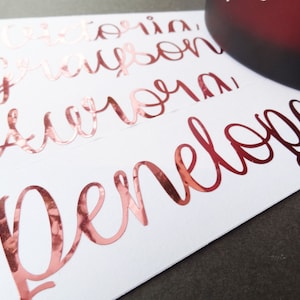 victoria
grayson
aurora
penelope